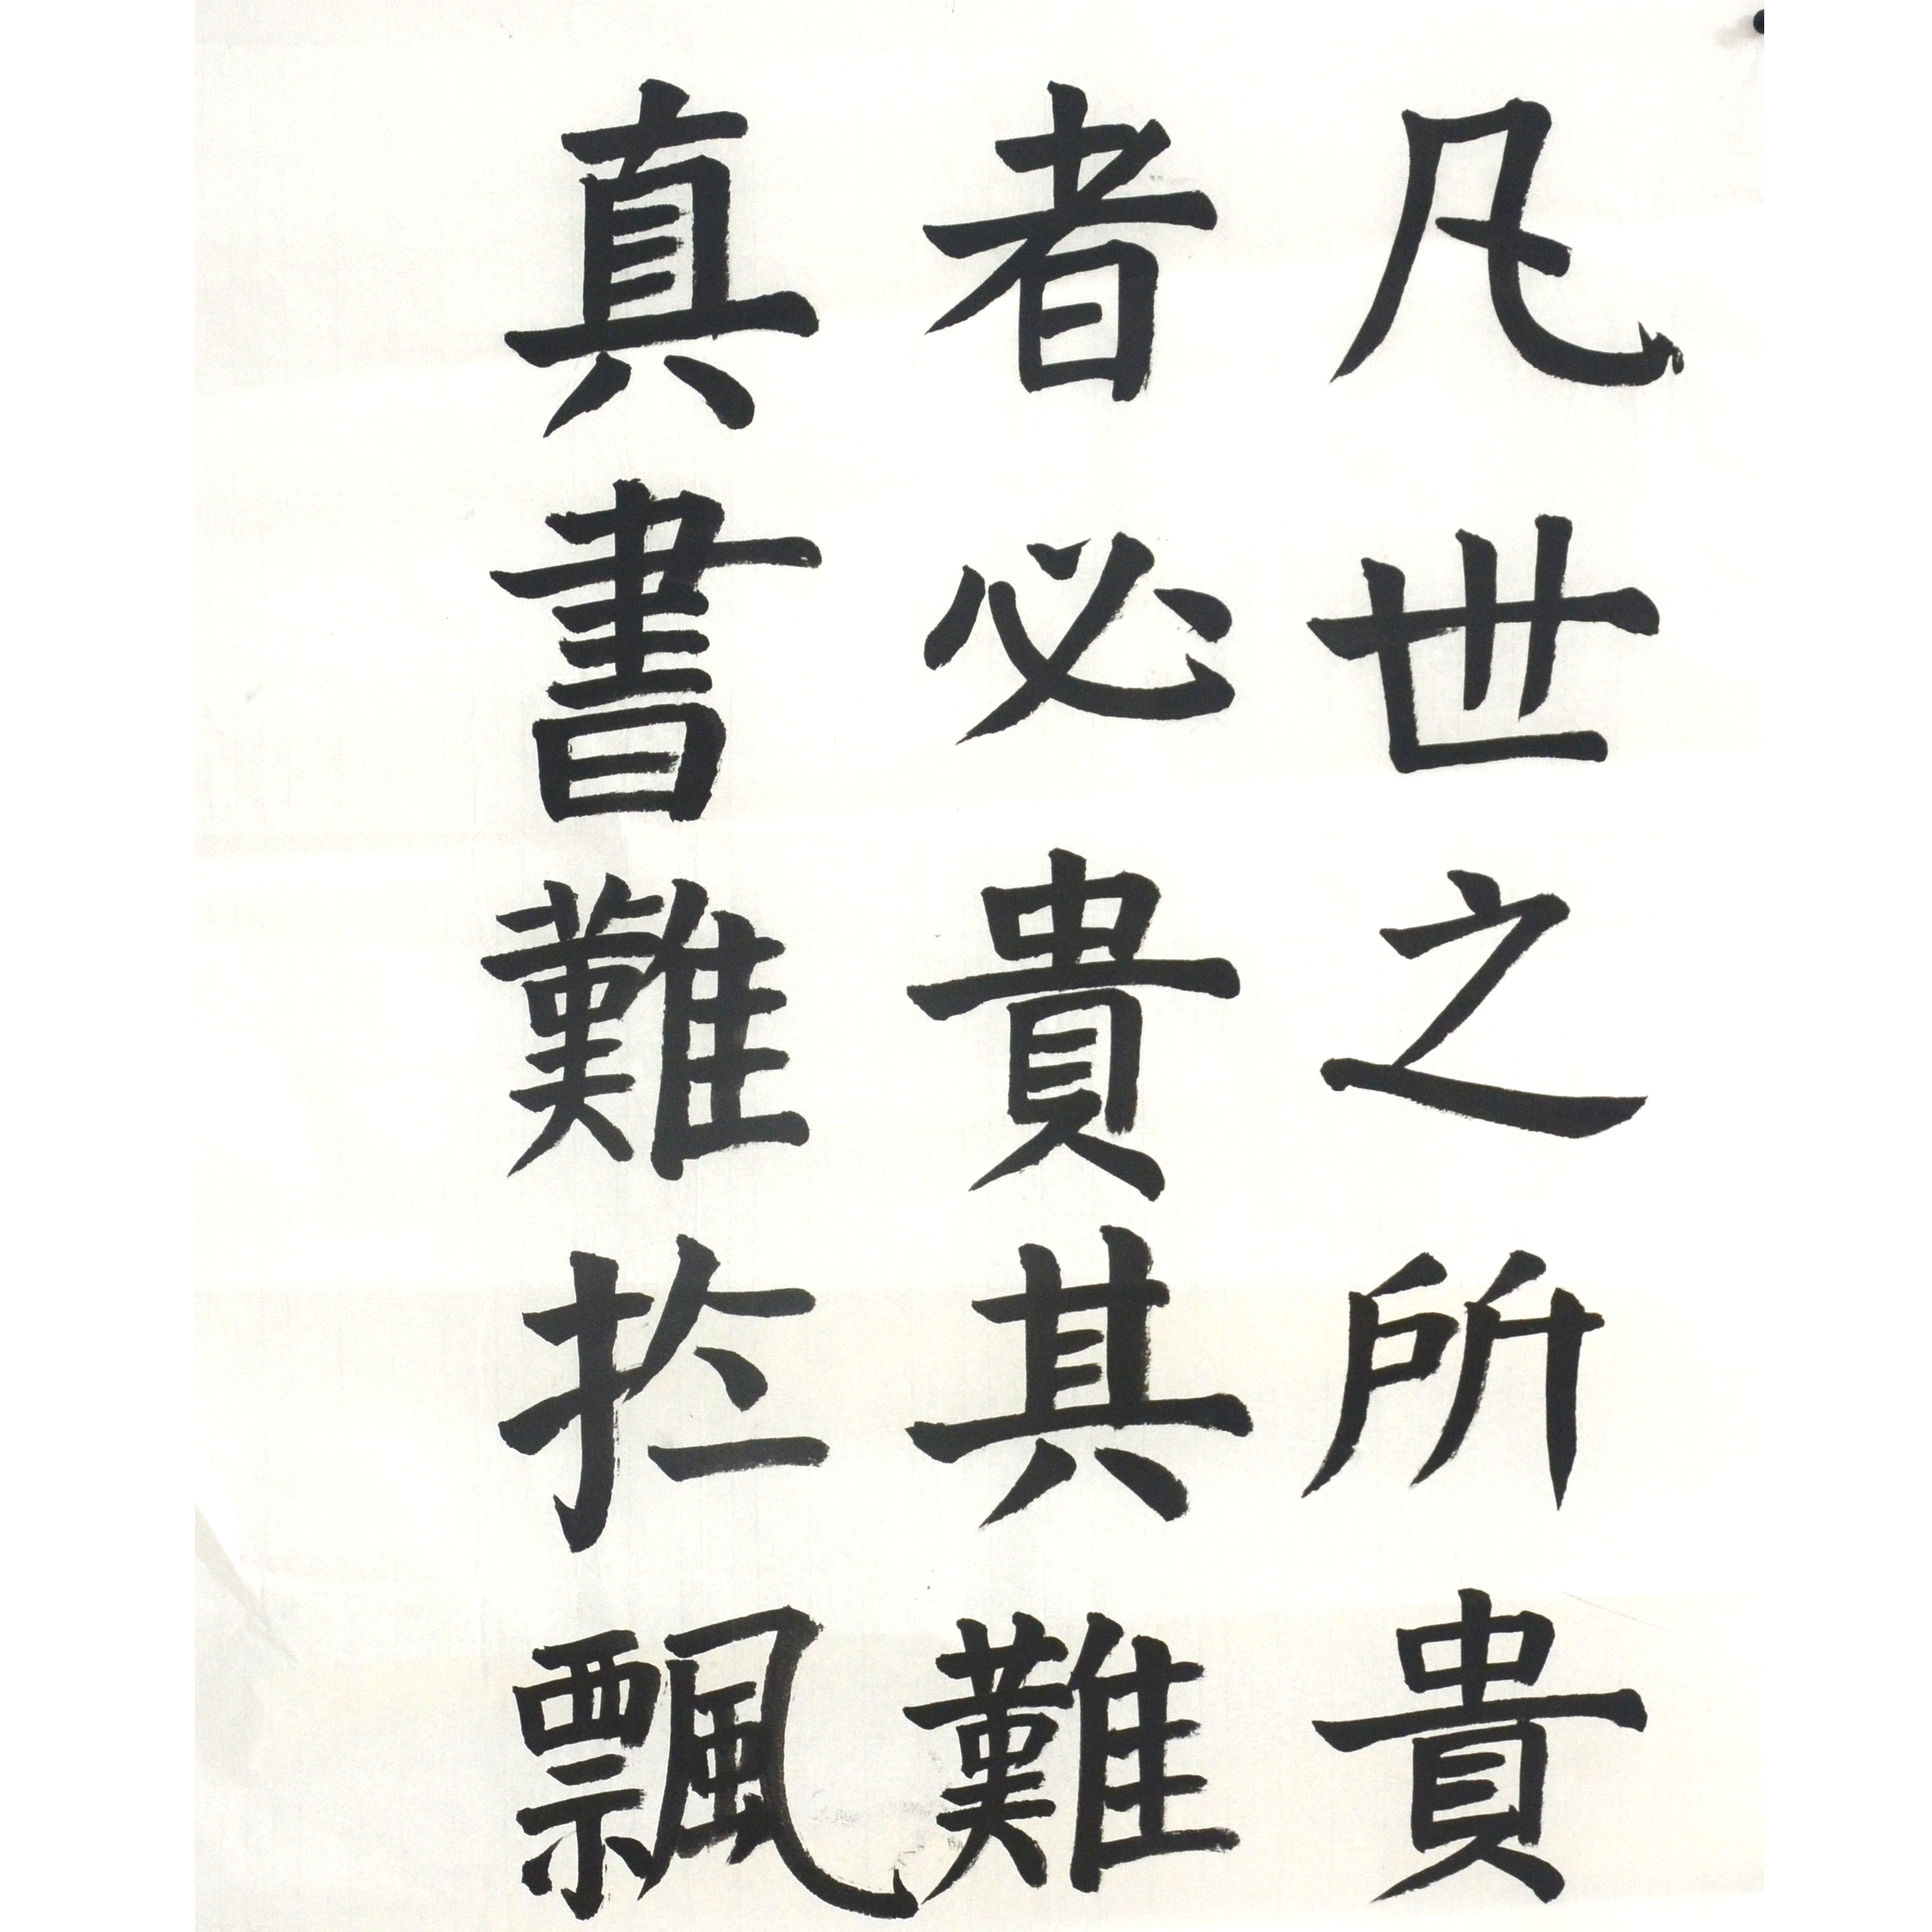 凡世之所貴
者必貴其難
真書難扵飄